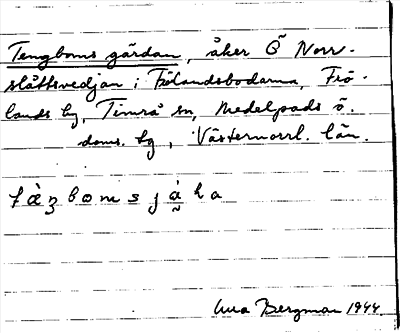 Tengboms gärdan, åker Ö Norr-
slåttsvedjan i Fröländsbodarna, Frö-
lands by, Timrå sn, Medelpads ö.
doms. tg, Västernorrl. län.
Bergman 1944.